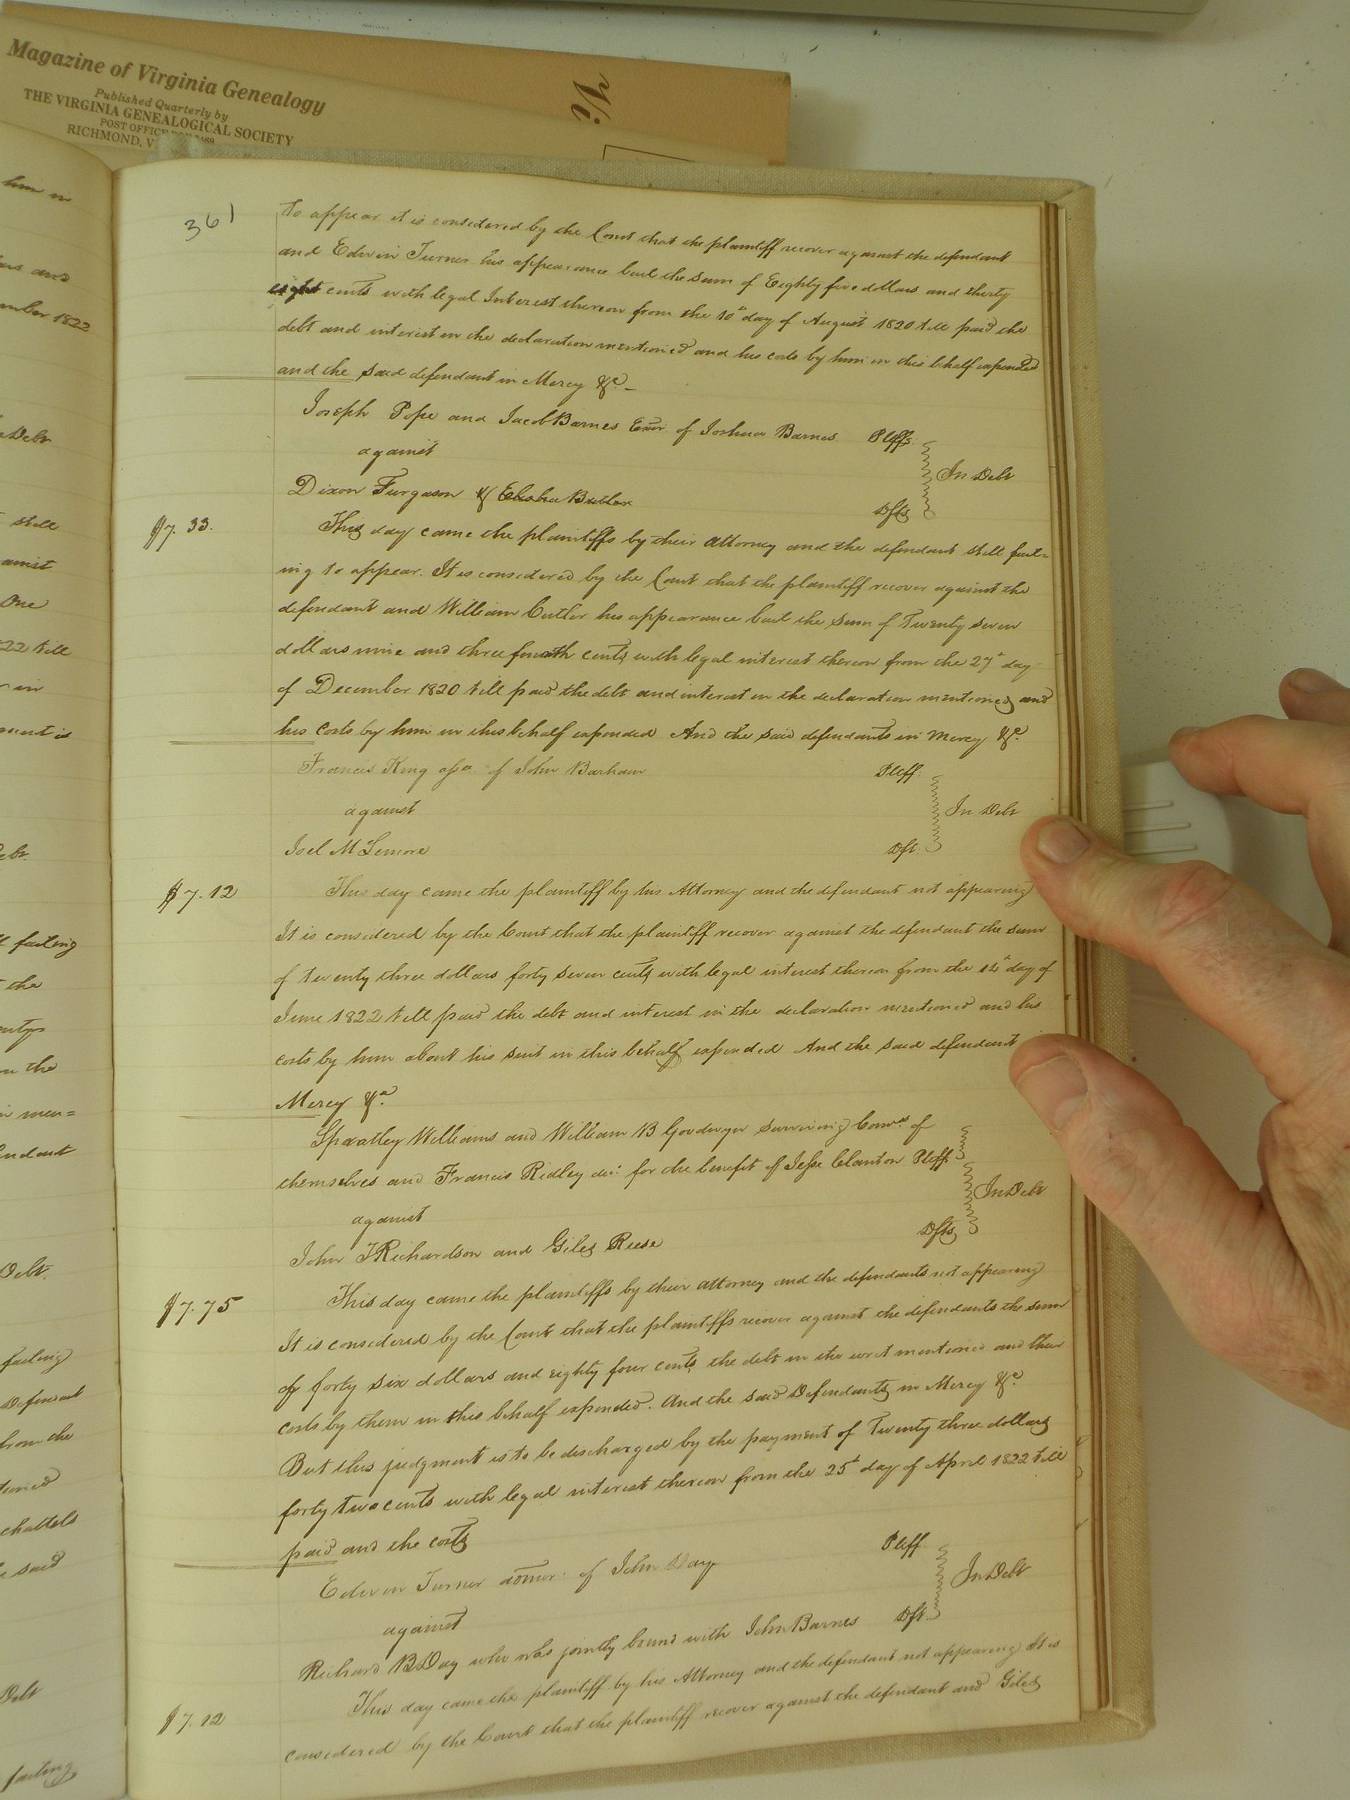 Magazine of Virginia Genealogy
Published Quarterly by
THE VIRGINIA GENEALOGICAL SOCIETY
POST OFFICE
RICHMOND, V
Vi
361
to appear it is considered by the Court that the plaintiff recover against the defendant
and Edwin Turner his appearance bail the sum of Eighty five dollars and thirty
eight cents with legal Interest thereon from the 10th day of August 1820 till paid the
debt and interest in the declaration mentioned and his costs by him in this behalf expended
and the said defendant in Mercy &c.
Joseph Pope and Jacob Barnes Exor. of Joshua Barnes Pltffs
against In Debt
Dixon Furgason & Elisha Butler Dfts
$7.33.
This day came the plaintiffs by their attorney and the defendant still fail=
ing to appear. It is considered by the Court that the plaintiff recover against the
defendant and William Butler his appearance bail the sum of Twenty seven
dollars nine and three fourth cents with legal interest thereon from the 27th day
of December 1820 till paid the debt and interest in the declaration mentioned and
his costs by him in this behalf expended And the said defendants in Mercy &c.
Francis King of John Barham Pltff
against In Debt
Joel McLemore Dft.
$7.12
This day came the plaintiff by his Attorney and the defendant not appearing
It is considered by the Court that the plaintiff recover against the defendant the sum
of twenty three dollars forty seven cents with legal interest thereon from the day of
June 1822 till paid the debt and interest in the declaration mentioned and his
costs by him about his suit in this behalf expended And the said defendant
Mercy &c.
Spratley Williams and William B Goodwyn surviving of
themselves and Francis Ridley dec: for the benefit of Jesse Clanton Pltff
against In Debt
John Richardson and Giles Reese Dfts
$7.75
This day came the plaintiffs by their attorney and the defendants not appearing
It is considered by the Court that the plaintiffs recover against the defendants the sum
of forty six dollars and eighty four cents the debt in the writ mentioned and their
costs by them in this behalf expended. And the said Defendants in Mercy &c.
But this judgment is to be discharged by the payment of Twenty three dollars
forty two cents with legal interest thereon from the 25th day of April 1822 till
paid and the costs
Edwin Turner of John Day Pltff
against In Debt
Richard B Day who was jointly bound with John Barnes Dft.
$7.12
This day came the plaintiff by his Attorney and the defendant not appearing It is
considered by the Court that the plaintiff recover against the defendant and Giles